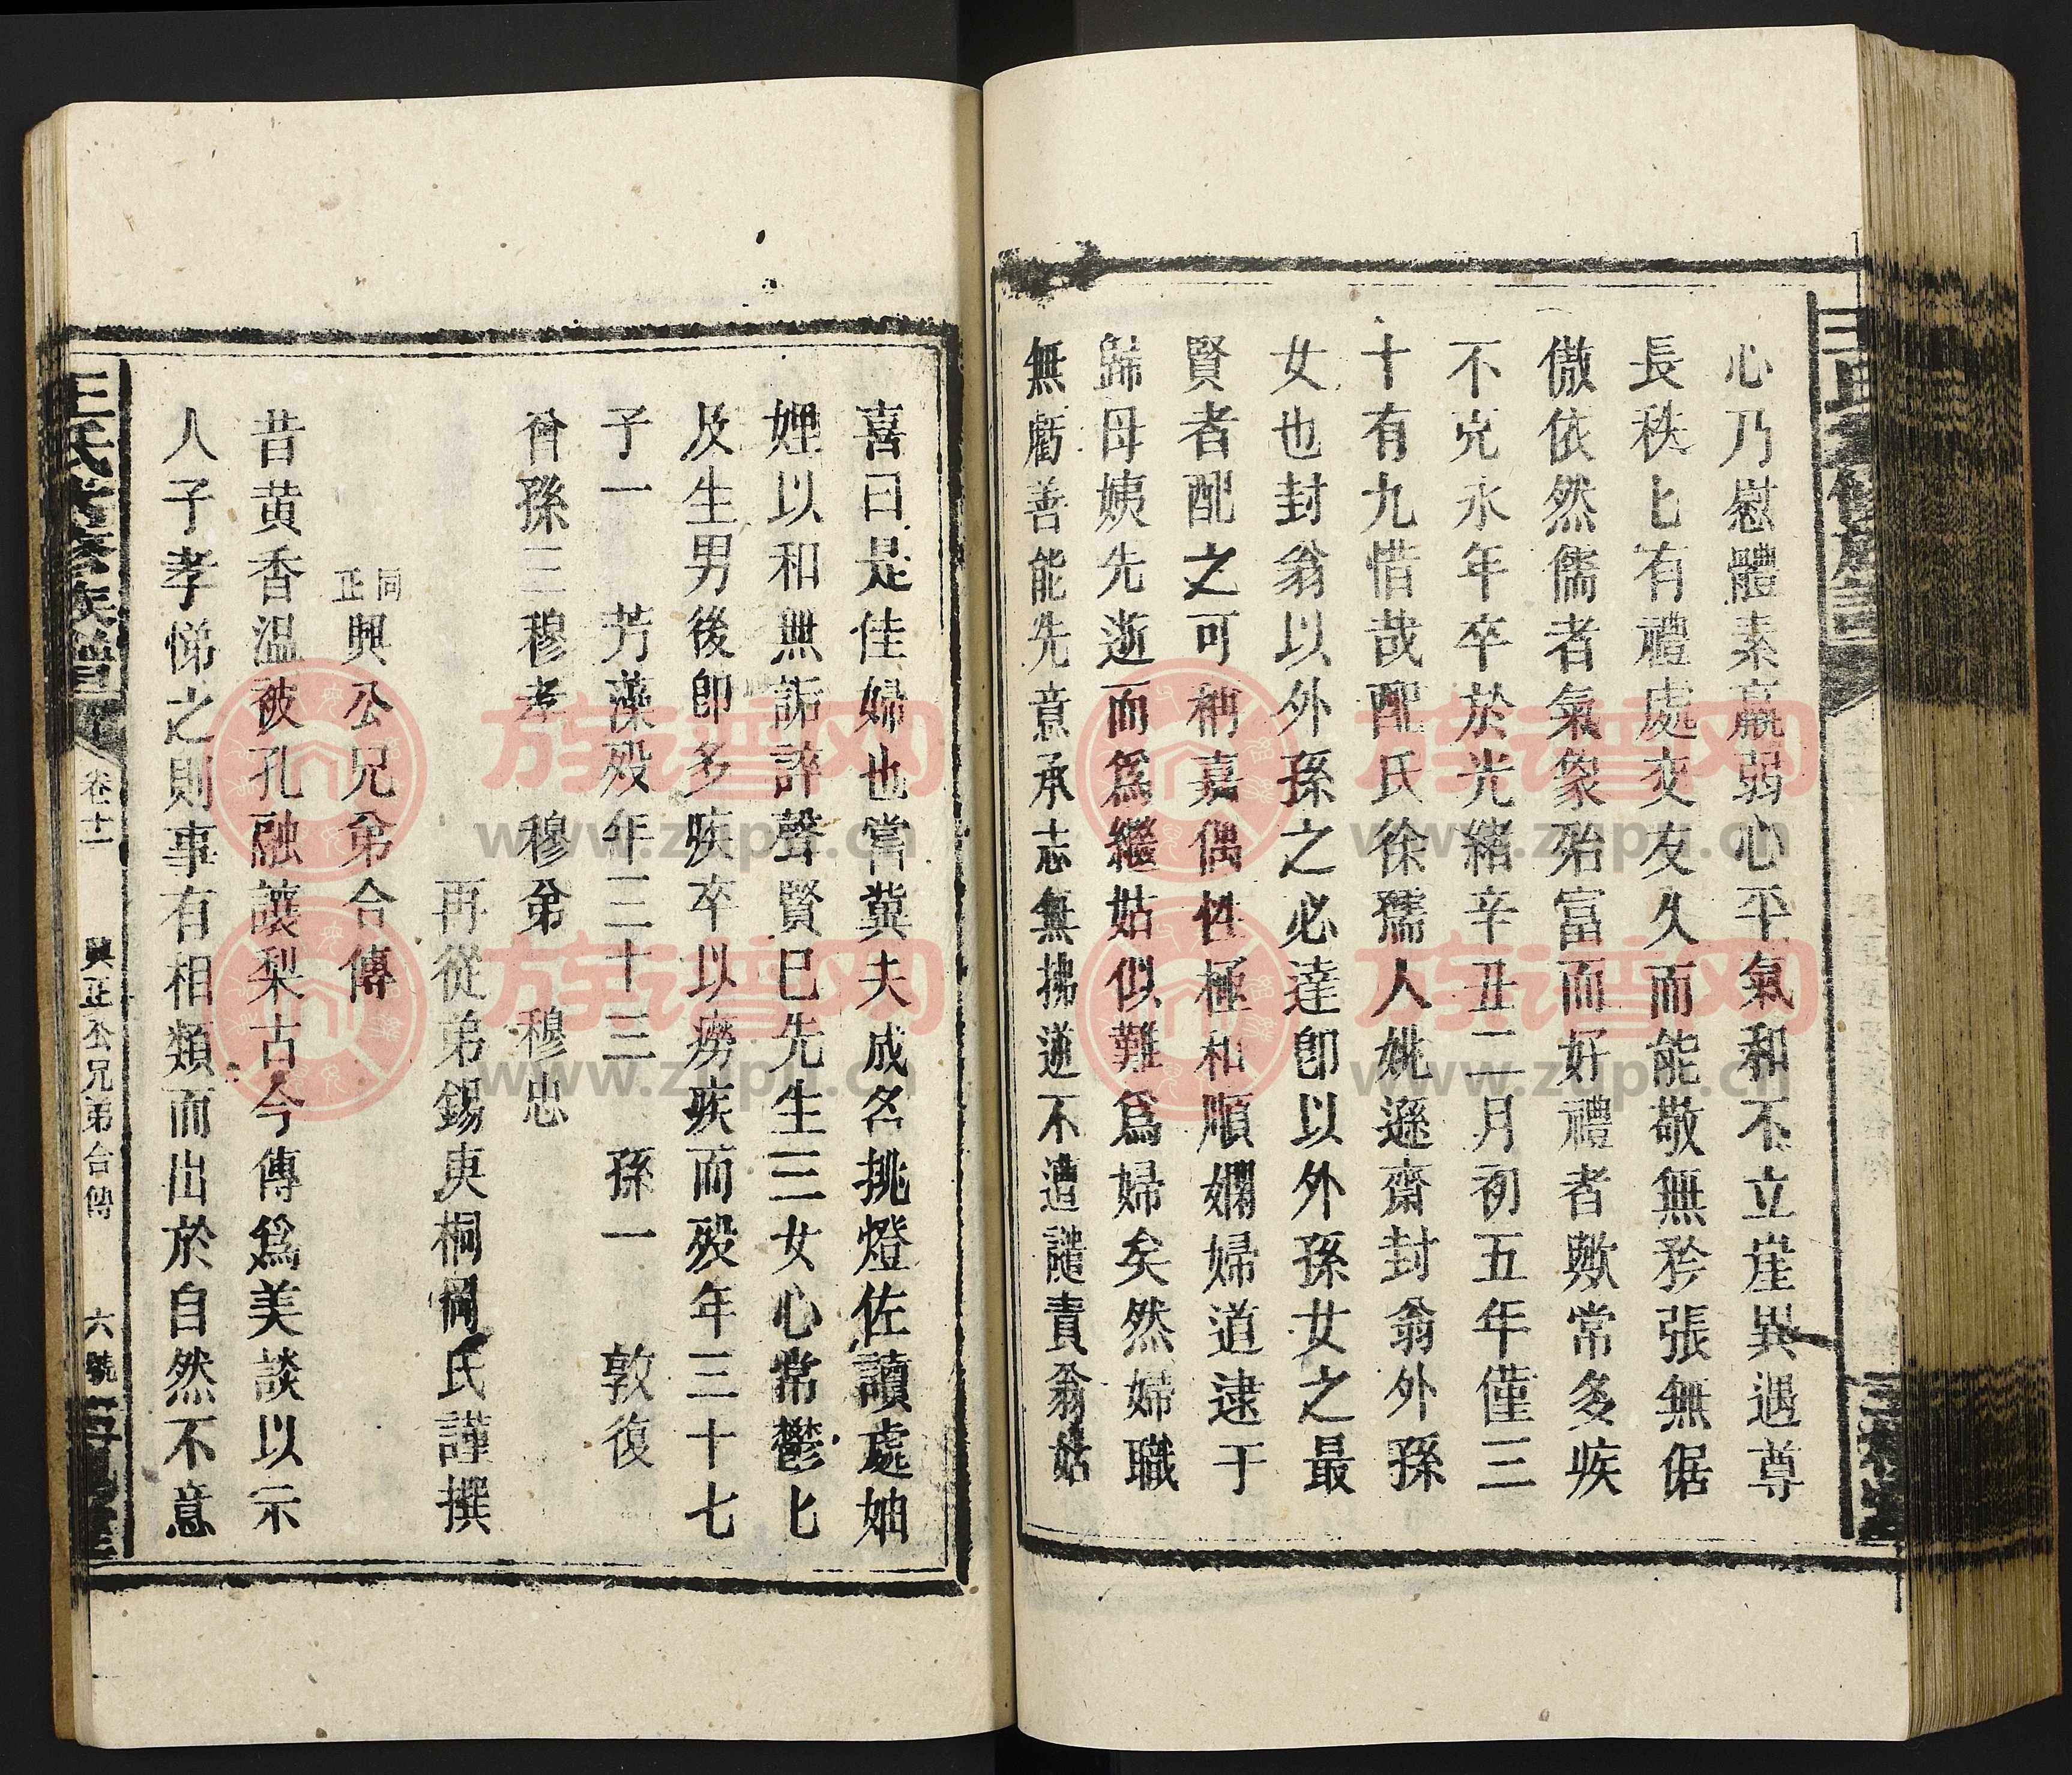 心乃慰體素羸弱心平氣和不立崖異遇尊
長秩匕有禮處交友久而能敬無矜張無倨
傲依然儒者氣象殆富而好禮者歟常多疾
不克永年卒於光緒辛丑二月初五年僅三
十有九惜哉配氏徐孺人姚遜齋封翁外孫
女也封翁以外孫之必達卽以外孫女之最
賢者配之可稱嘉偶性極和順嫻婦道逮于
歸母姨先逝而爲繼姑似難爲婦矣然婦職
無虧善能先意承志無拂逆不遭譴責翁姑
喜曰是佳婦也當冀夫成名挑燈佐讀處妯
娌以和無詬誶聲賢巳先生三女心常鬱匕
及生男後卽多疾卒以癆疾而殁年三十七
子一 芳藻殁年三十三 孫一 敦復
曾孫三穆孝 穆弟 穆忠
再從弟錫庚桐岡氏謹撰
同正興公兄弟合傳
昔黃香溫被孔融讓梨古今傳爲美談以示
人子孝悌之則事有相類而出於自然不意
王氏 修族譜 卷十一 興正公兄弟合傳 六號 三槐堂